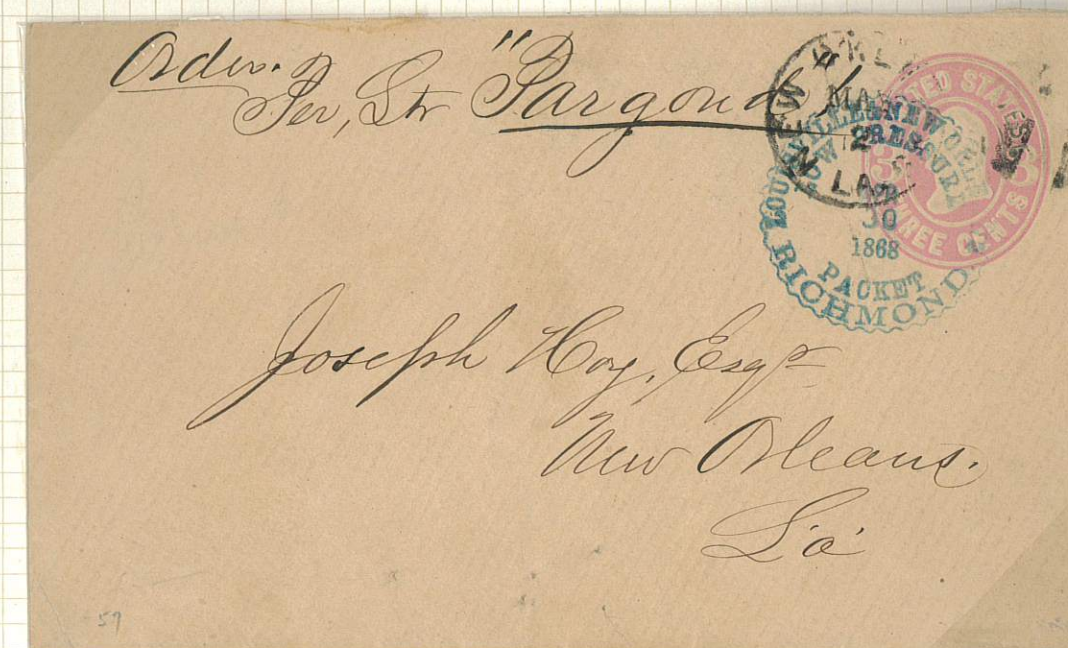 Order.
Per, Str "Pargoud"
NEW ORLEANS
MAY
2
LA.
UNITED STATES
THREE CENTS
3 3
LOUISVILLE & NEW ORLEANS
LOW PRESSURE
30
1868
PACKET
RICHMOND
Joseph Hoy, Esqr
New Orleans.
La
57